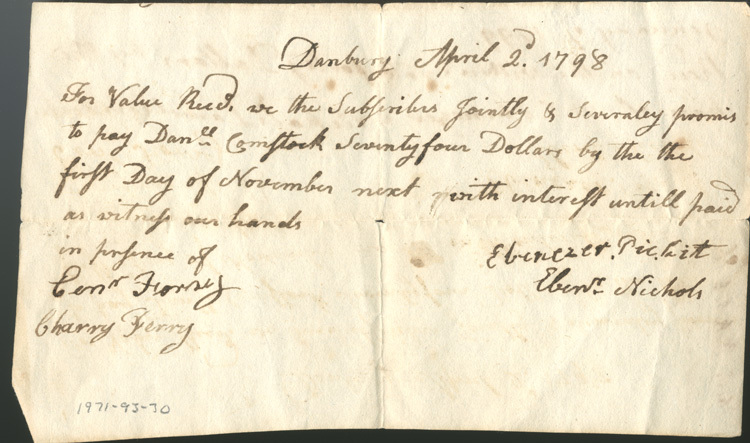 Danbury April 2d. 1798
For Value Recd. we the Subscribers Jointly & Severaley promis
to pay Danll Comstock Seventyfour Dollars by the the
first Day of November next with interest untill paid
as witness our hands
in presence of
Ebenezer. Pickit
Ebenr. Nichols
Charry Ferry
1971-93-30